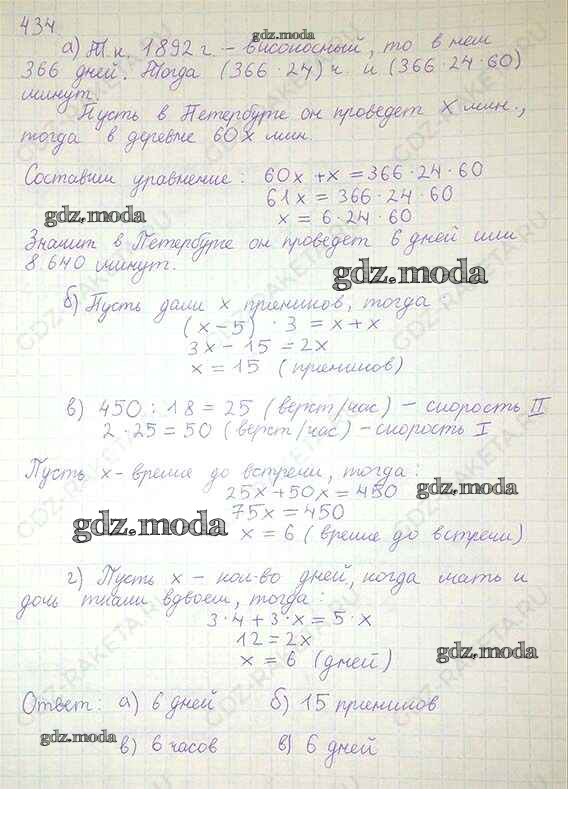 434.
gdz.moda
а) Т.к. 1892 г. – високосный, то в нем
366 дней. Тогда (366 · 24) ч. и (366 · 24 · 60)
минут.
Пусть в Петербурге он проведет x мин.,
тогда в деревне 60x мин.
Составим уравнение: 60x + x = 366 · 24 · 60
61x = 366 · 24 · 60
gdz.moda
x = 6 · 24 · 60
Значит в Петербурге он проведет 6 дней или
8.640 минут.
gdz.moda
б) Пусть дали x пряников, тогда:
(x – 5) · 3 = x + x
3x – 15 = 2x
x = 15 (пряников)
в) 450 : 18 = 25 (верст/час) – скорость II
2 · 25 = 50 (верст/час) – скорость I
Пусть x – время до встречи, тогда:
25x + 50x = 450
gdz.moda
75x = 450
gdz.moda
x = 6 (время до встречи)
г) Пусть x – кол-во дней, когда мать и
дочь ткали вдвоем, тогда:
3 · 4 + 3 · x = 5 · x
12 = 2x
gdz.moda
x = 6 (дней)
Ответ: а) 6 дней б) 15 пряников
gdz.moda
в) 6 часов в) 6 дней
GDZ-RAKETA.RU